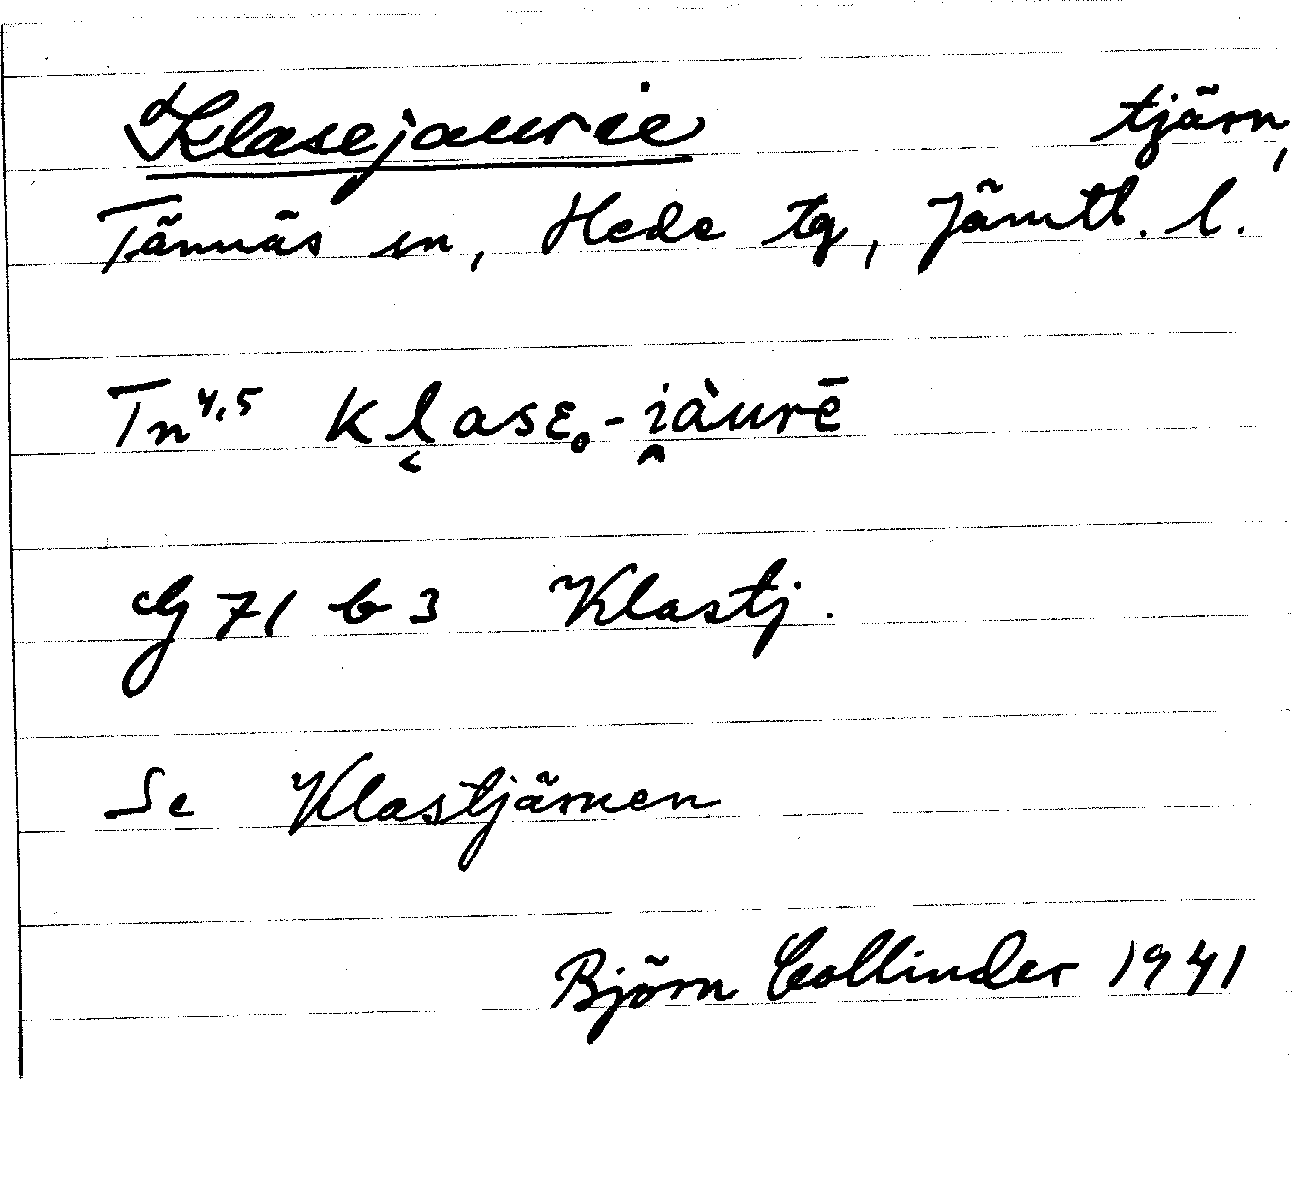 Klasejaurie tjärn,
Tännäs sn, Hede tg, Jämtl. l.
Tn 4,5 kl̬asɛ˳-i̯àurē
G 71 b 3 Klastj.
Se Klastjärnen
Björn Collinder 1941